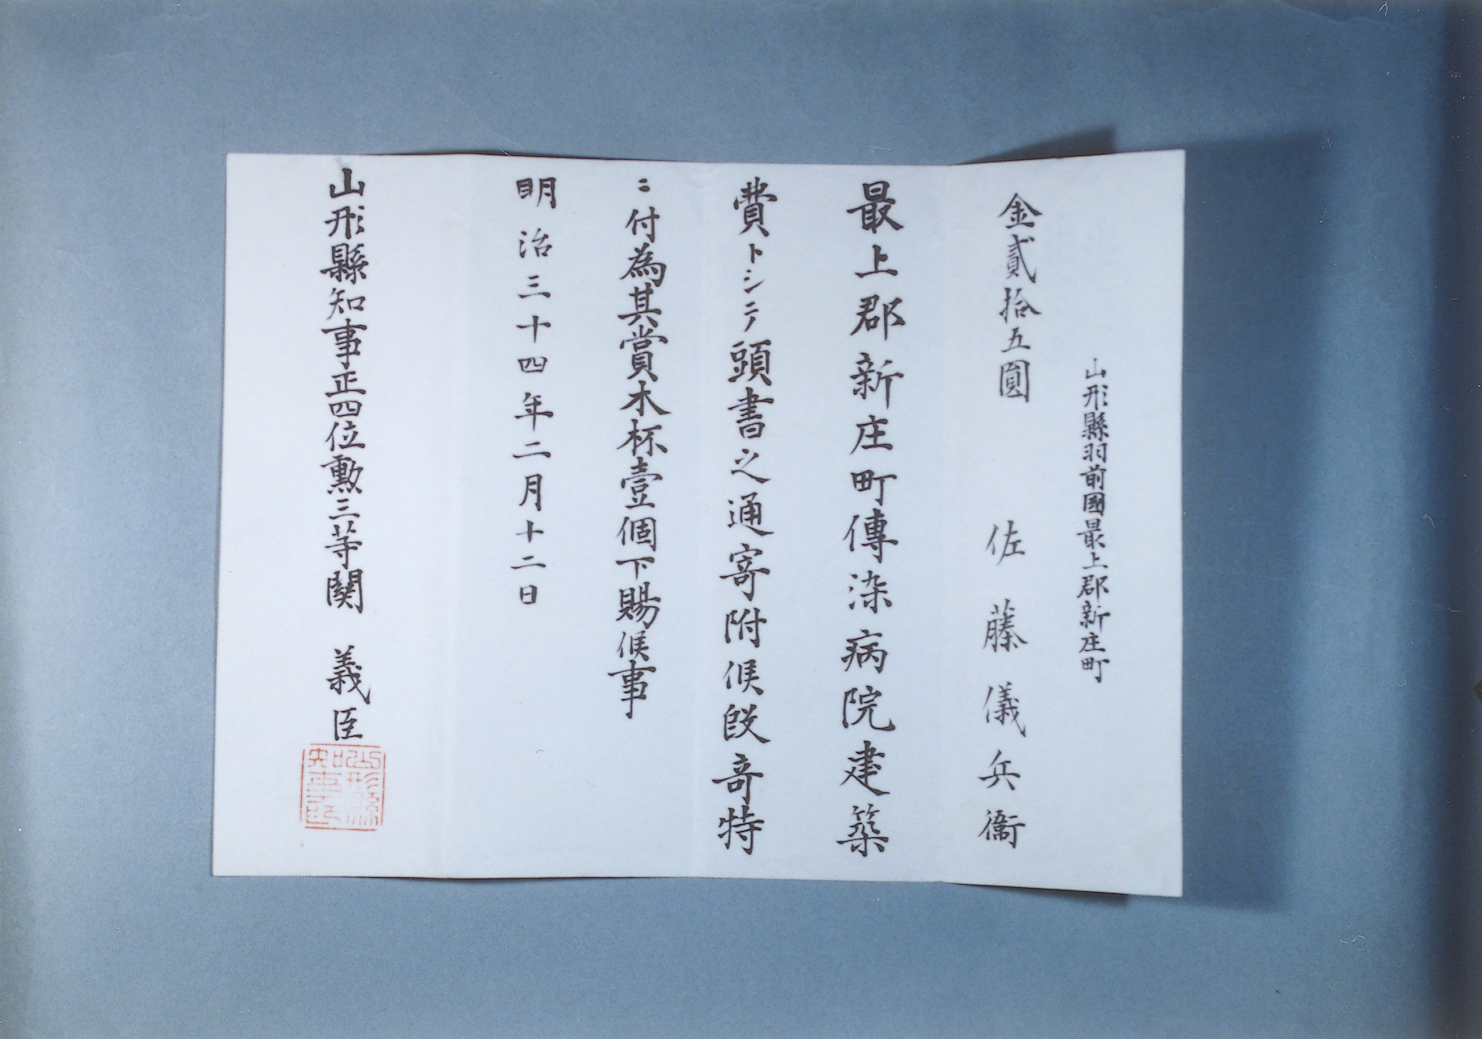 山形縣羽前國最上郡新庄町
金貳拾五圓　佐藤儀兵衞
最上郡新庄町傳染病院建築
費トシテ頭書之通寄附候段奇特
ニ付為其賞木杯壹個下賜候事
明治三十四年二月十二日
山形縣知事正四位勲三等関　義臣
山形縣知事印